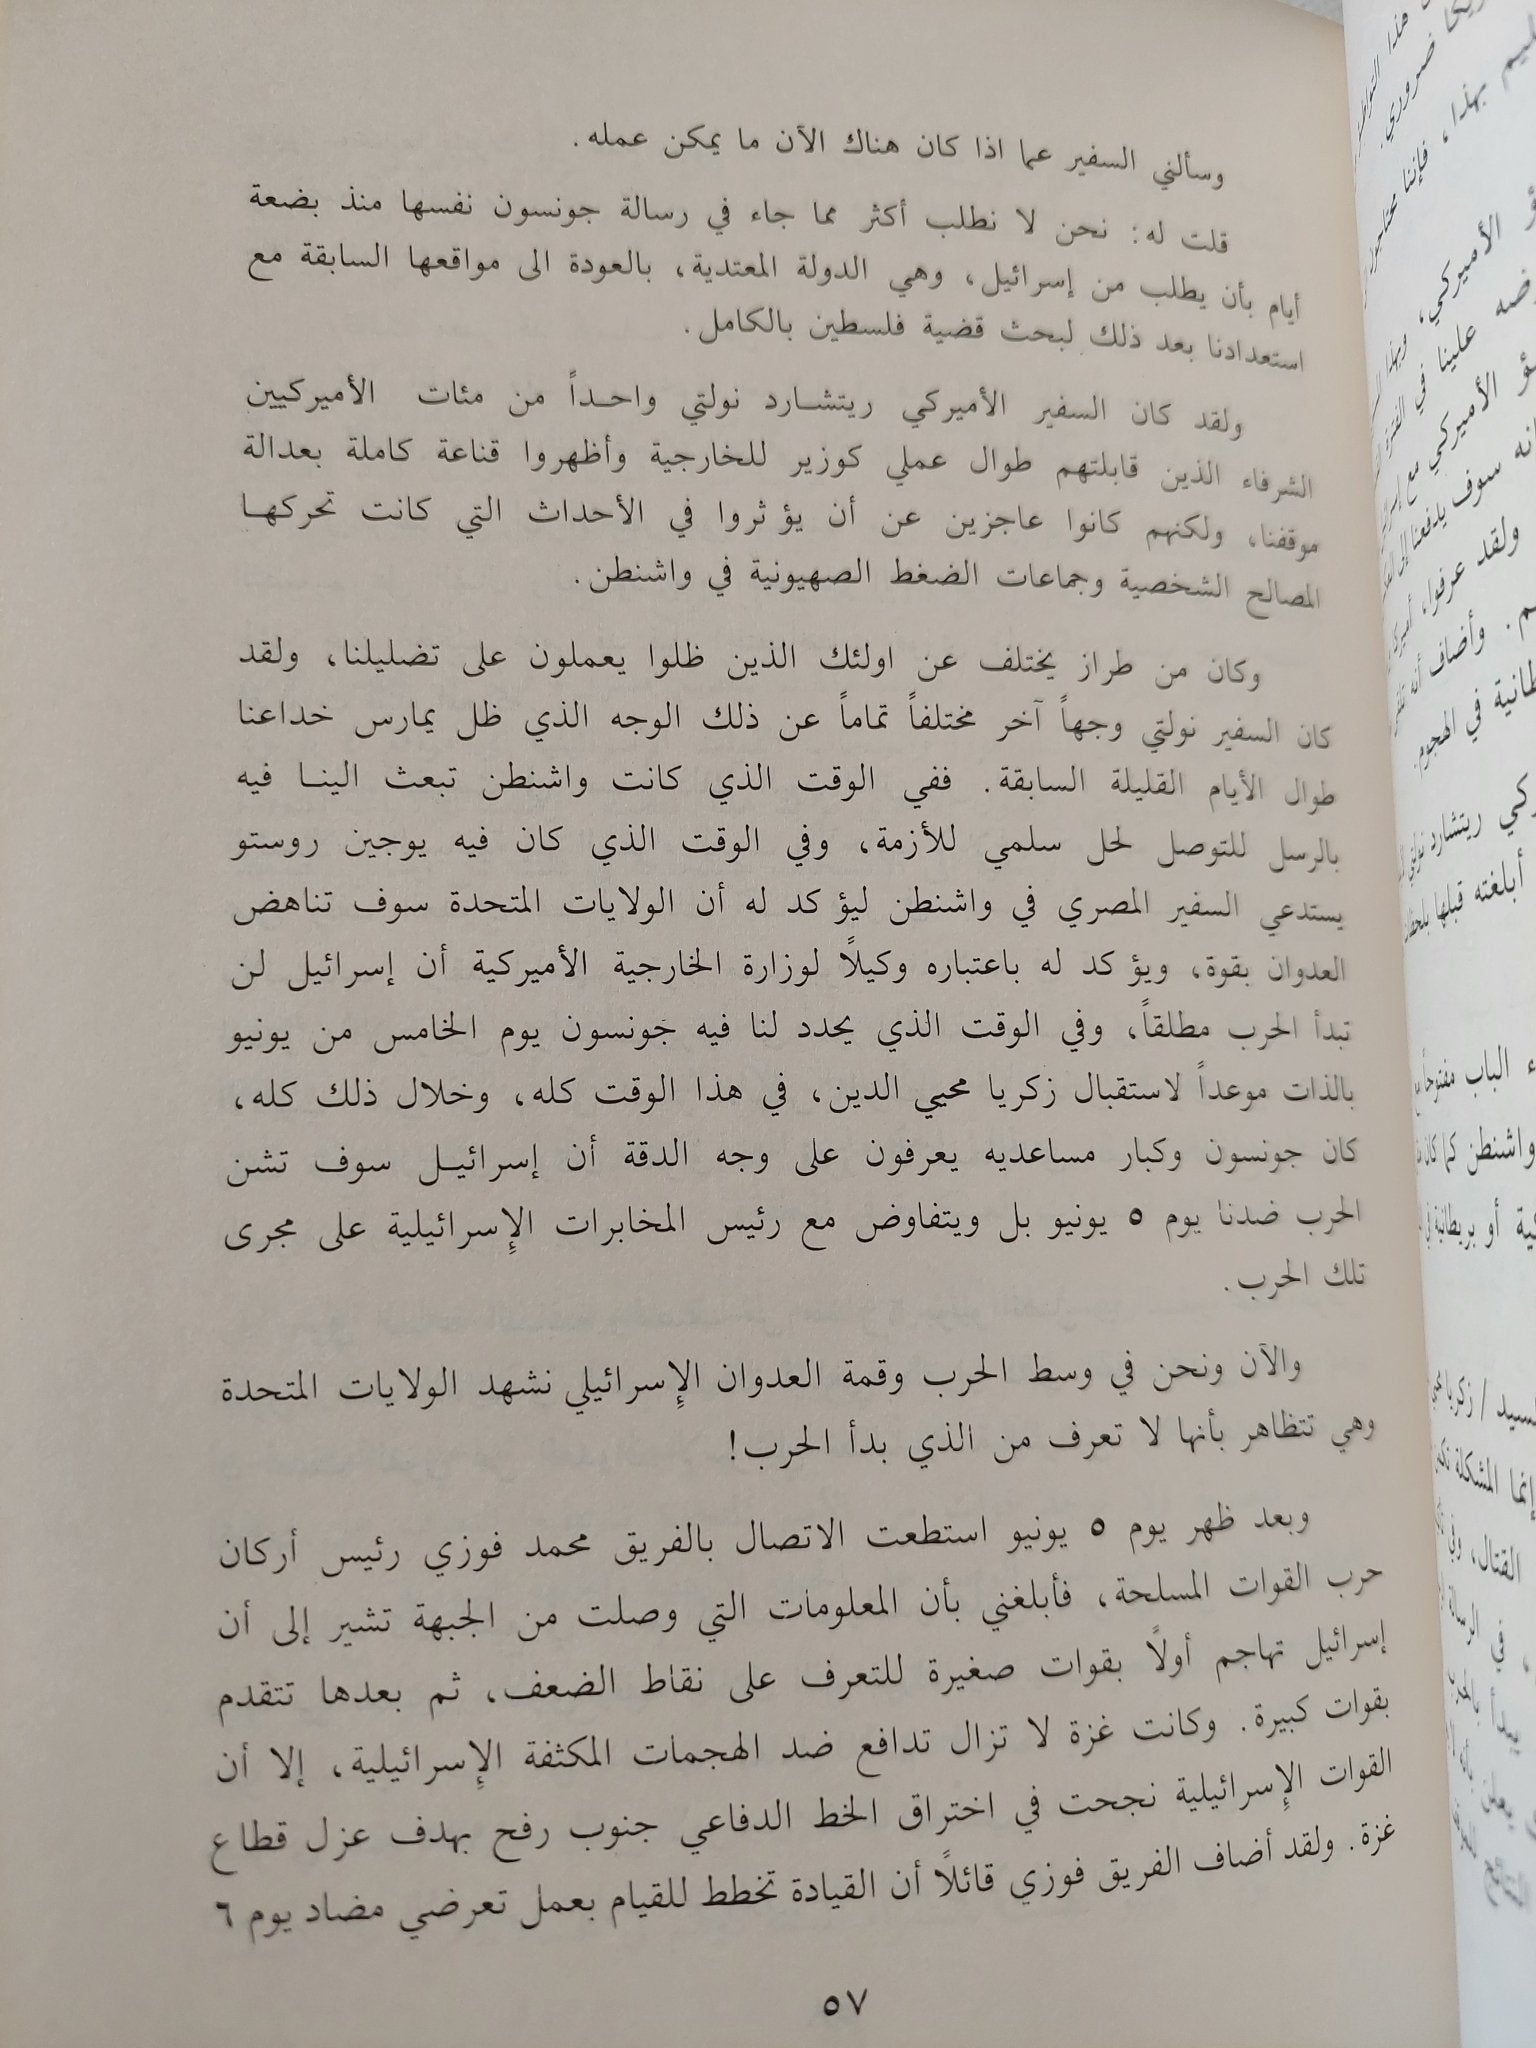 وسألني السفير عما اذا كان هناك الآن ما يمكن عمله.
قلت له: نحن لا نطلب أكثر مما جاء في رسالة جونسون نفسها منذ بضعة
أيام بأن يطلب من إسرائيل، وهي الدولة المعتدية، بالعودة الى مواقعها السابقة مع
استعدادنا بعد ذلك لبحث قضية فلسطين بالكامل.
ولقد كان السفير الأميركي ريتشارد نولتي واحداً من مئات الأميركيين
الشرفاء الذين قابلتهم طوال عملي كوزير للخارجية وأظهروا قناعة كاملة بعدالة
موقفنا، ولكنهم كانوا عاجزين عن أن يؤثروا في الأحداث التي كانت تحركها
المصالح الشخصية وجماعات الضغط الصهيونية في واشنطن.
وكان من طراز يختلف عن اولئك الذين ظلوا يعملون على تضليلنا، ولقد
كان السفير نولتي وجهاً آخر مختلفاً تماماً عن ذلك الوجه الذي ظل يمارس خداعنا
طوال الأيام القليلة السابقة. ففي الوقت الذي كانت واشنطن تبعث الينا فيه
بالرسل للتوصل لحل سلمي للأزمة، وفي الوقت الذي كان فيه يوجين روستو
يستدعي السفير المصري في واشنطن ليؤكد له أن الولايات المتحدة سوف تناهض
العدوان بقوة، ويؤكد له باعتباره وكيلاً لوزارة الخارجية الأميركية أن إسرائيل لن
تبدأ الحرب مطلقاً، وفي الوقت الذي يحدد لنا فيه جونسون يوم الخامس من يونيو
بالذات موعداً لاستقبال زكريا محيي الدين، في هذا الوقت كله، وخلال ذلك كله،
كان جونسون وكبار مساعديه يعرفون على وجه الدقة أن إسرائيل سوف تشن
الحرب ضدنا يوم ٥ يونيو بل ويتفاوض مع رئيس المخابرات الإسرائيلية على مجرى
تلك الحرب.
والآن ونحن في وسط الحرب وقمة العدوان الإسرائيلي نشهد الولايات المتحدة
وهي تتظاهر بأنها لا تعرف من الذي بدأ الحرب!
وبعد ظهر يوم ٥ يونيو استطعت الاتصال بالفريق محمد فوزي رئيس أركان
حرب القوات المسلحة، فأبلغني بأن المعلومات التي وصلت من الجبهة تشير إلى أن
إسرائيل تهاجم أولاً بقوات صغيرة للتعرف على نقاط الضعف، ثم بعدها تتقدم
بقوات كبيرة. وكانت غزة لا تزال تدافع ضد الهجمات المكثفة الإسرائيلية، إلا أن
القوات الإسرائيلية نجحت في اختراق الخط الدفاعي جنوب رفح بهدف عزل قطاع
غزة. ولقد أضاف الفريق فوزي قائلاً أن القيادة تخطط للقيام بعمل تعرضي مضاد يوم ٦
٥٧